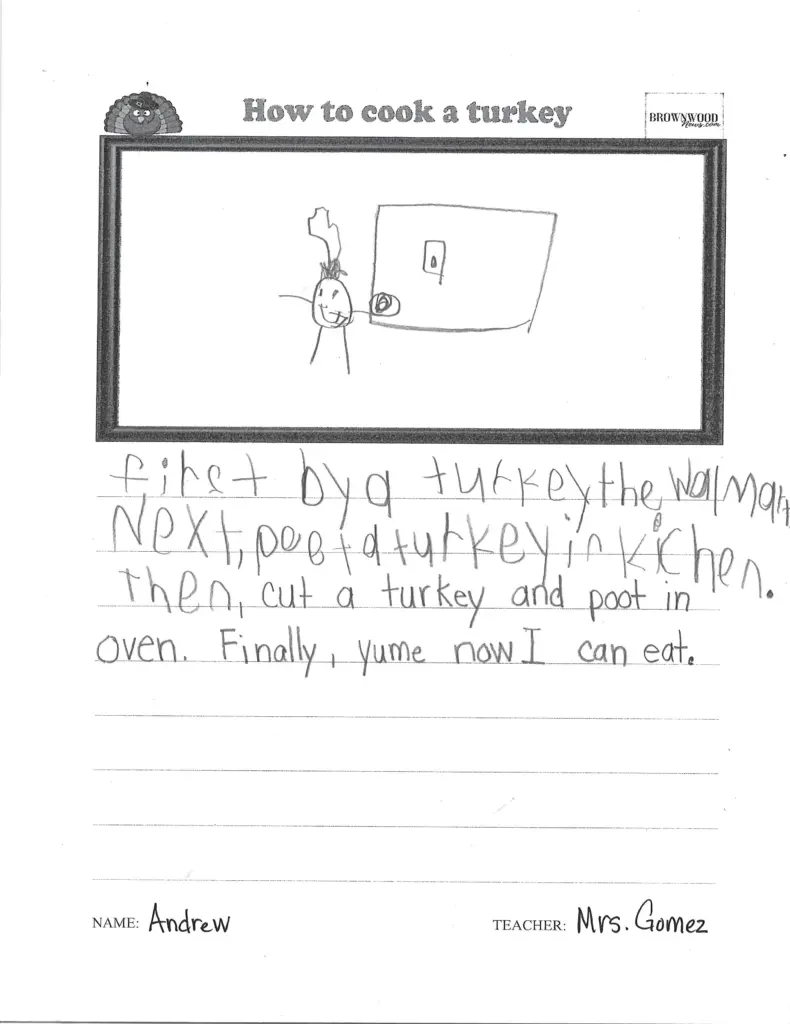 How to cook a turkey
BROWNWOOD
News.com
first by a turkey the Walmart
Next, poot a turkey in kichen.
Then, cut a turkey and poot in
oven. Finally, yume now I can eat.
NAME: Andrew
TEACHER: Mrs. Gomez